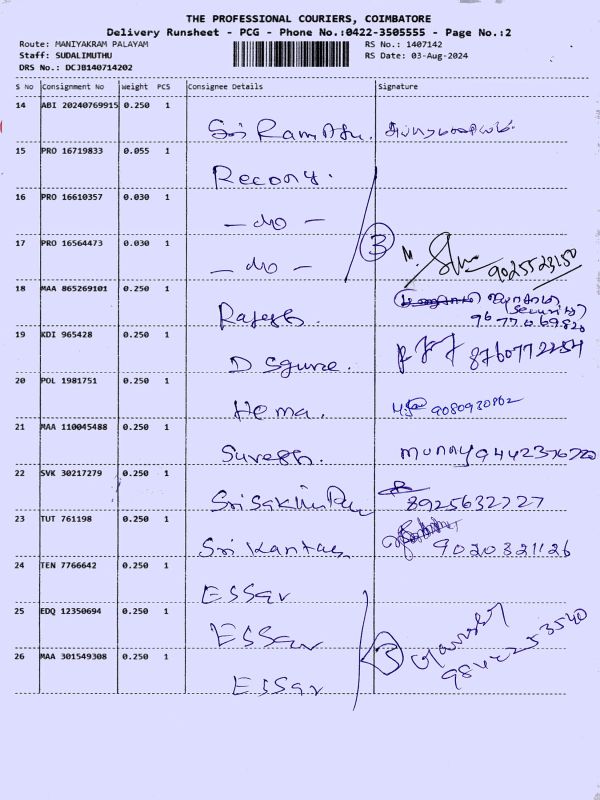 THE PROFESSIONAL COURIERS, COIMBATORE
Delivery Runsheet - PCG - Phone No.:0422-3505555 - Page No.:2
Route: MANIYAKRAM PALAYAM
RS No.: 1407142
Staff: SUDALIMUTHU
RS Date: 03-Aug-2024
DRS No.: DCJB140714202
S No Consignment No Weight PCS Consignee Details Signature
14 ABI 20240769915 0.250 1
Sri Ram
15 PRO 16719833 0.055 1
Recony.
16 PRO 16610357 0.030 1
- do -
17 PRO 16564473 0.030 1
- do -
3
9025523150
18 MAA 865269101 0.250 1
Rajesh.
(security)
9677069820
19 KDI 965428 0.250 1
D Squre.
8760772284
20 POL 1981751 0.250 1
Hema.
9080930862
21 MAA 110045488 0.250 1
Suresh.
munay 9442376720
22 SVK 30217279 0.250 1
8925632727
23 TUT 761198 0.250 1
Sri Kantas
9020321126
24 TEN 7766642 0.250 1
ESSar
25 EDQ 12350694 0.250 1
ESSar
3
26 MAA 301549308 0.250 1
ESSar